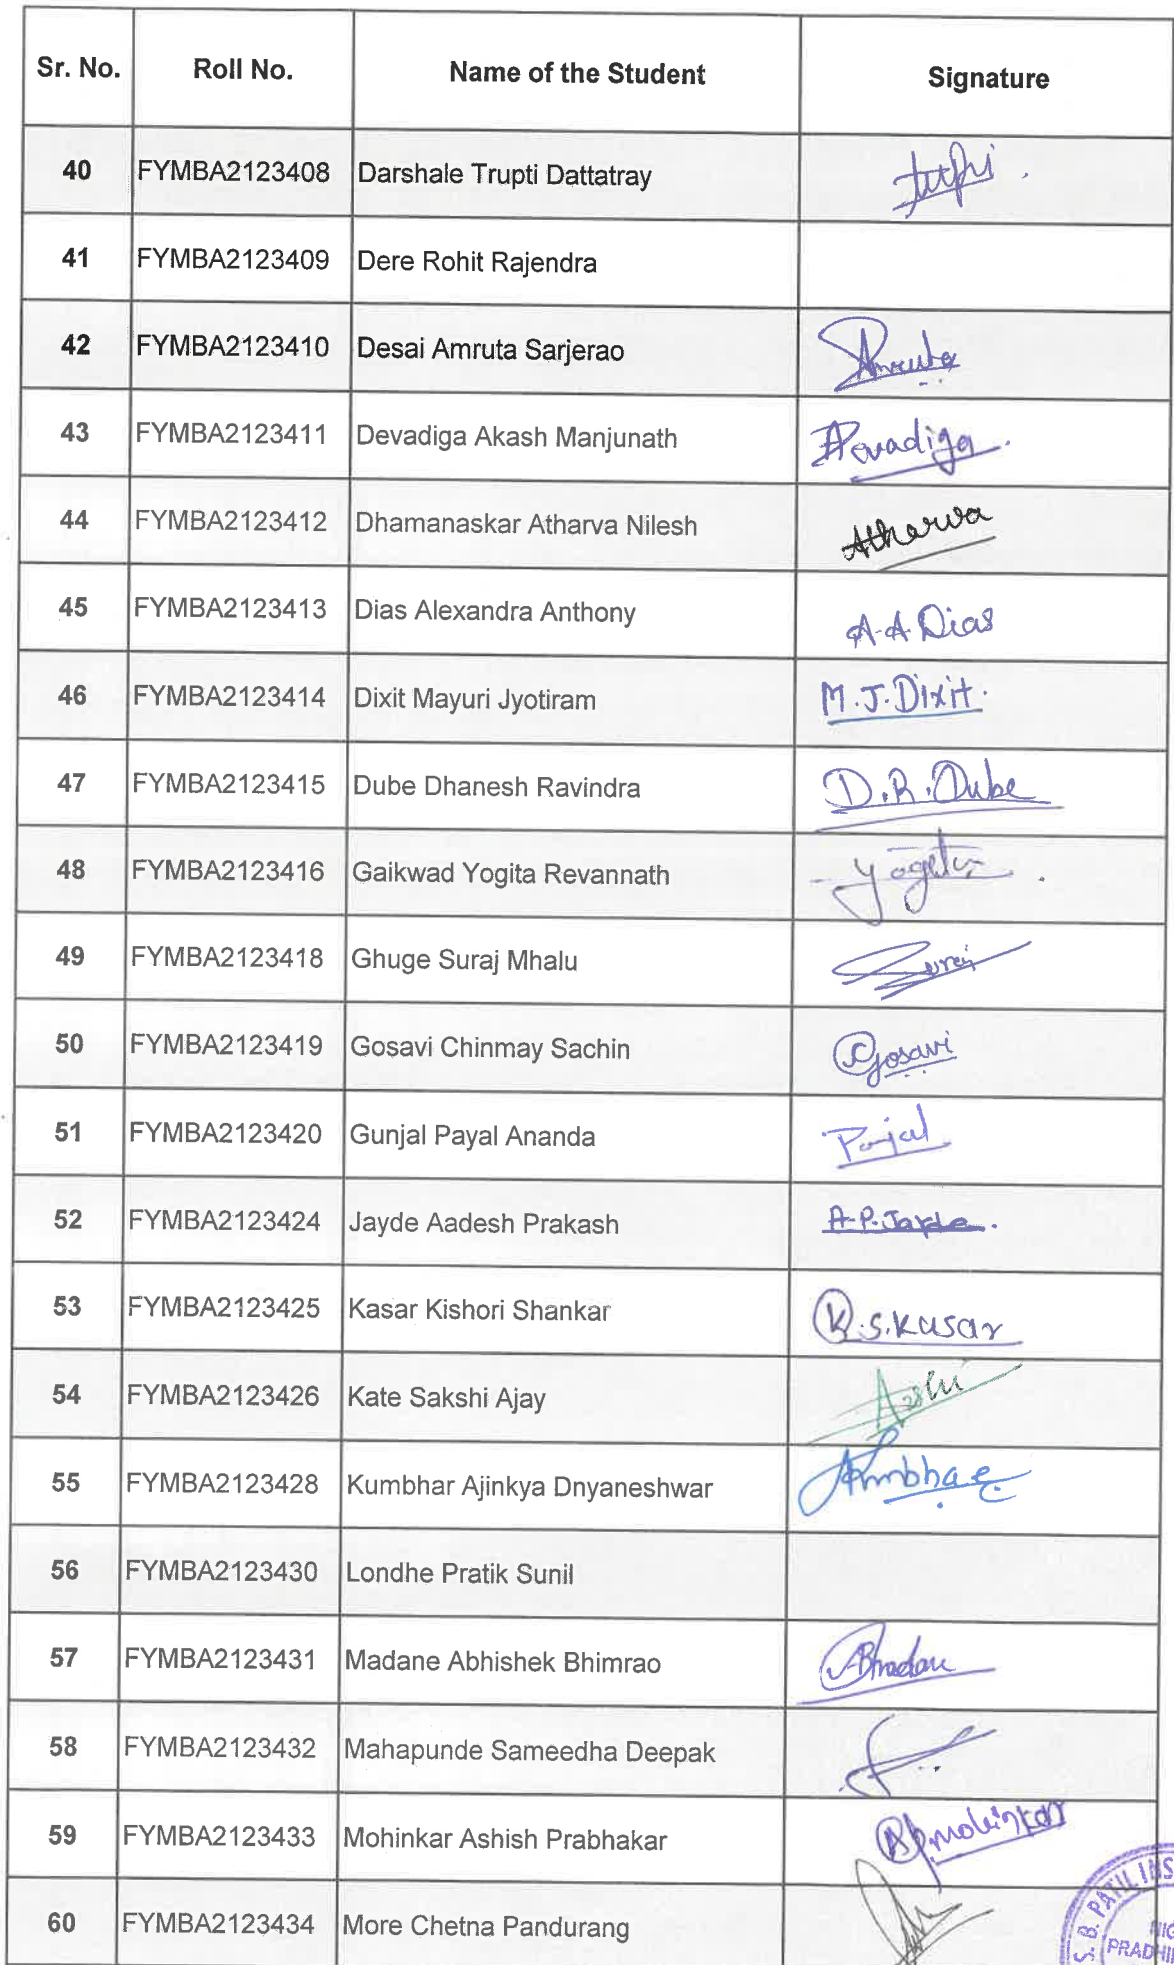 Sr. No. Roll No. Name of the Student Signature
40 FYMBA2123408 Darshale Trupti Dattatray
41 FYMBA2123409 Dere Rohit Rajendra
42 FYMBA2123410 Desai Amruta Sarjerao Amruta
43 FYMBA2123411 Devadiga Akash Manjunath ADevadiga.
44 FYMBA2123412 Dhamanaskar Atharva Nilesh Atharva
45 FYMBA2123413 Dias Alexandra Anthony A.A.Dias
46 FYMBA2123414 Dixit Mayuri Jyotiram M.J.Dixit.
47 FYMBA2123415 Dube Dhanesh Ravindra D.R.Dube
48 FYMBA2123416 Gaikwad Yogita Revannath Yogita
49 FYMBA2123418 Ghuge Suraj Mhalu Suraj
50 FYMBA2123419 Gosavi Chinmay Sachin CGosavi
51 FYMBA2123420 Gunjal Payal Ananda Payal
52 FYMBA2123424 Jayde Aadesh Prakash A.P.Jayde.
53 FYMBA2123425 Kasar Kishori Shankar K.S.Kasar
54 FYMBA2123426 Kate Sakshi Ajay
55 FYMBA2123428 Kumbhar Ajinkya Dnyaneshwar
56 FYMBA2123430 Londhe Pratik Sunil
57 FYMBA2123431 Madane Abhishek Bhimrao
58 FYMBA2123432 Mahapunde Sameedha Deepak
59 FYMBA2123433 Mohinkar Ashish Prabhakar
60 FYMBA2123434 More Chetna Pandurang
S. B. PATIL INS
NIG
PRADHI